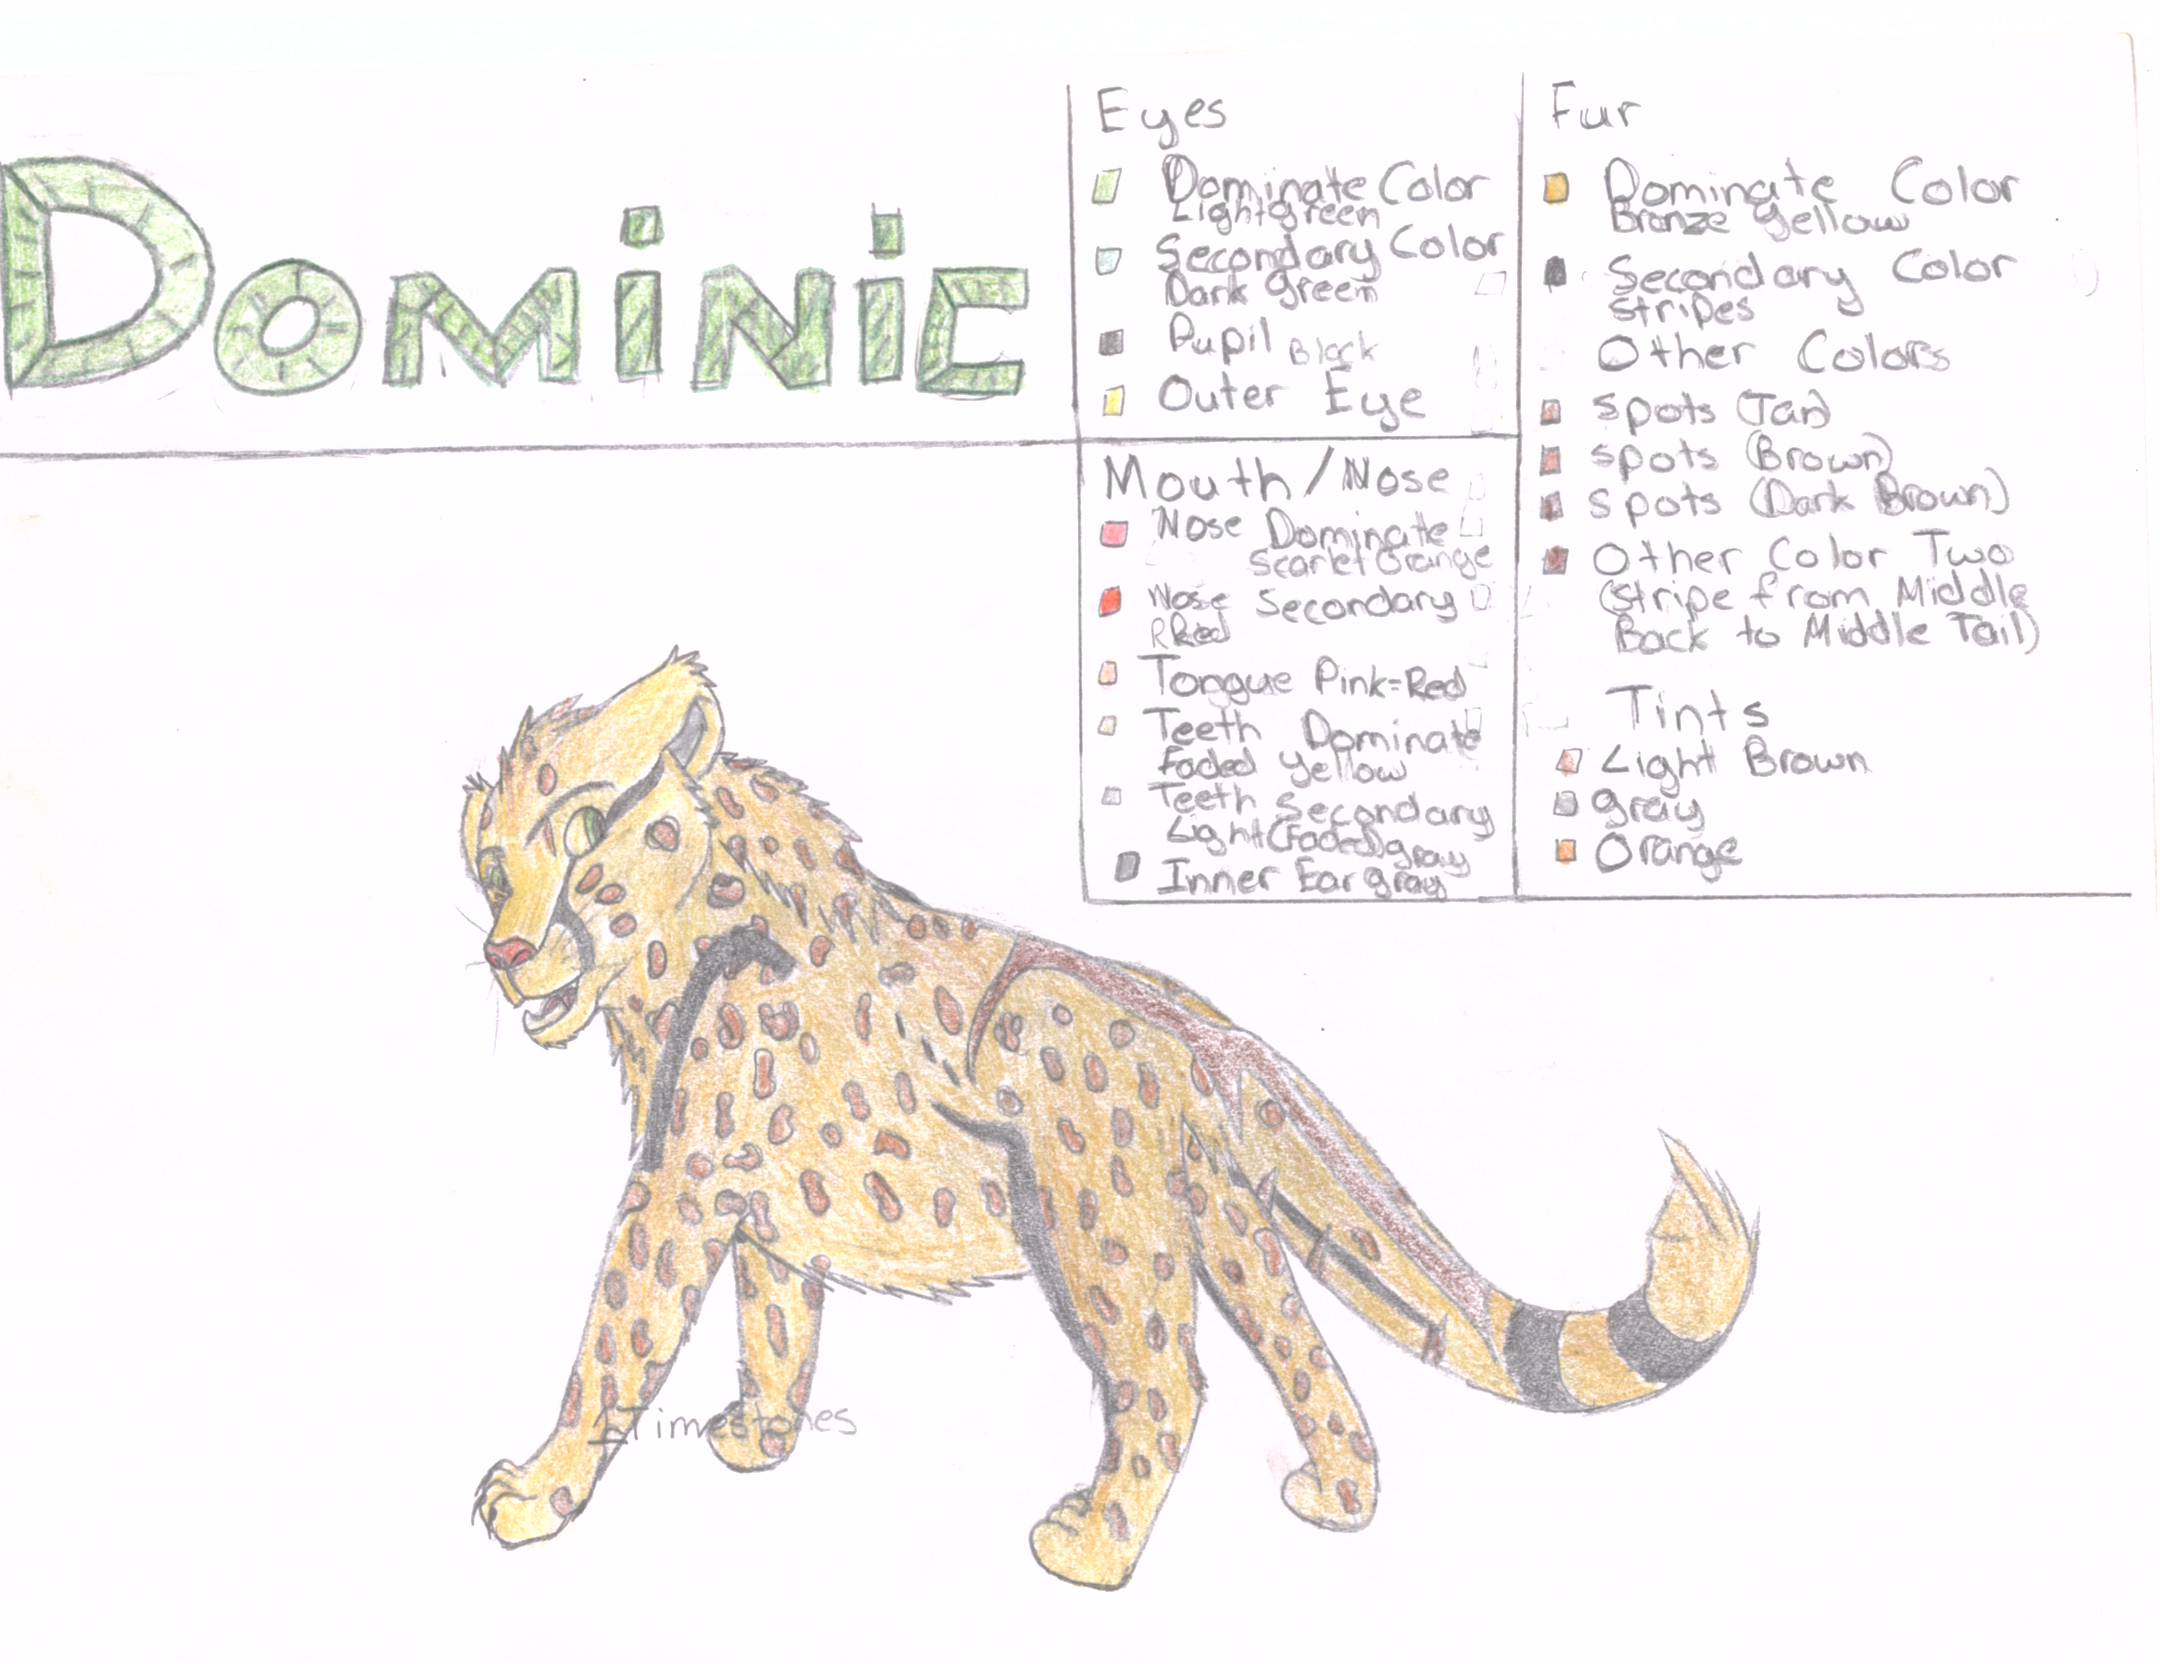 Dominic
Eyes
Dominate Color
Light green
Secondary Color
Dark Green
Pupil Black
Outer Eye
Mouth/Nose
Nose Dominate
Scarlet Orange
Nose Secondary
RRed
Tongue Pink=Red
Teeth Dominate
Faded Yellow
Teeth Secondary
Light(Faded)gray
Inner Ear gray
Fur
Dominate Color
Bronze Yellow
Secondary Color
Stripes
Other Colors
Spots (Tan)
Spots (Brown)
Spots (Dark Brown)
Other Color Two
(Stripe from Middle
Back to Middle Tail)
Tints
Light Brown
gray
Orange
1Timestones